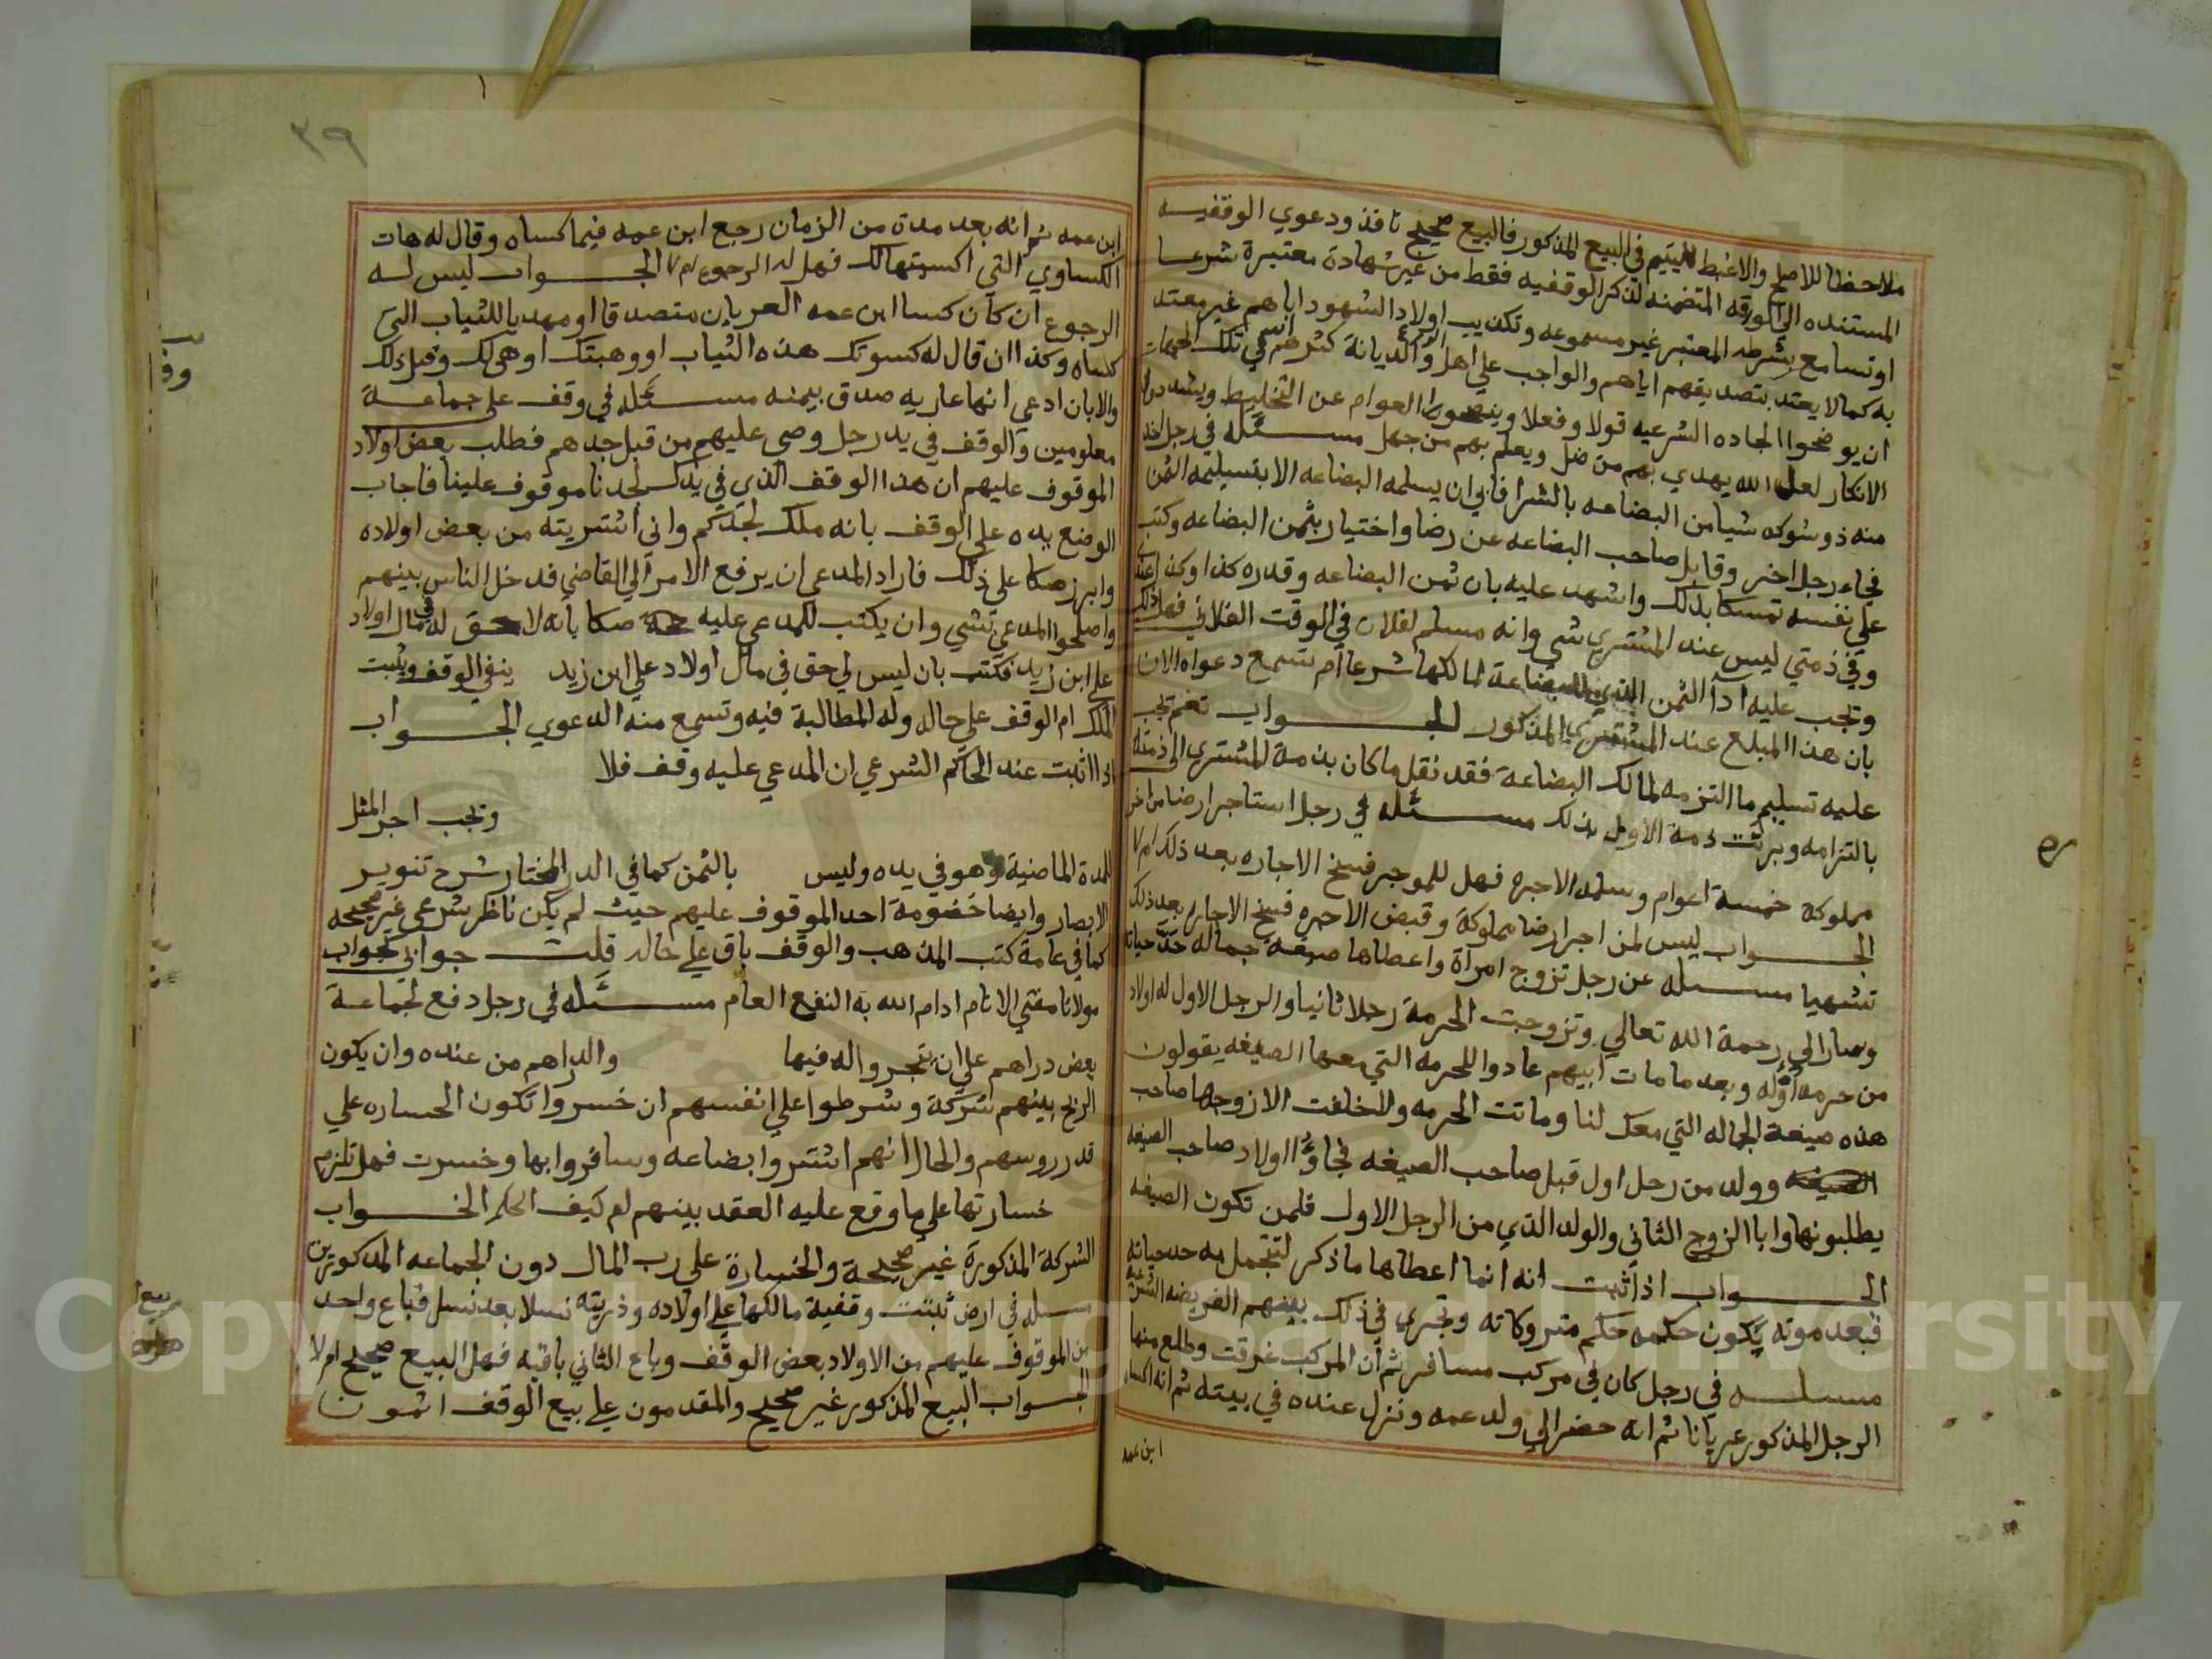 ملاحظا للاصلح والاغبط لليتيم في البيع المذكور فالبيع صحيح نافذ ودعوي الوقفيه
المستنده الي الورقه المتضمنه لذكر الوقفيه فقط من غير شهادة معتبرة شرعا
او تسامع بشرطه المعتبر غير مسموعه وتكذيب اولاد الشهود اباهم غير معتد
به كما لا يعتد بتصديقهم اياهم والواجب علي اهل والديانة كثرهم في تلك الجهات
ان يوضحوا الجاده الشرعيه قولا وفعلا وينصحوا العوام عن التخليط ويشددوا
الانكار لعل الله يهدي بهم من ضل ويعلم بهم من جهل مسئله في رجل اخذ
منه ذو شوكه شيا من البضاعه بالشرا فابي ان يسلمه البضاعه الا بتسليمه الثمن
فجاء رجل اخر وقابل صاحب البضاعه عن رضا واختيار بثمن البضاعه وكتب
علي نفسه تمسكا بذلك واشهد عليه بان ثمن البضاعه وقدره كذا وكذا عندي
وفي ذمتي ليس عند المشتري شي وانه مسلم لفلان في الوقت الفلاني فهل ذلك
وتجب عليه ادآ الثمن الذي للبضاعة لمالكها شرعا ام تسمع دعواه الان
بان هذا المبلغ عند المشتري المذكور الجواب نعم تجب
عليه تسليم ما التزمه لمالك البضاعة فقد نقل ما كان بذمة المشتري الي ذمته
بالتزامه وبرئت ذمة الاول بذلك مسئله في رجل استاجر ارضا من اخر
مملوكة خمسة اعوام وسلمه الاجره فهل للموجر فسخ الاجاره بعد ذلك ام لا
الجواب ليس لمن اجر ارضا مملوكة وقبض الاجره فسخ الاجاره بعد ذلك
تشهيا مسئله عن رجل تزوج امرآة واعطاها صيغه جماله حد حياته
وصار الي رحمة الله تعالي وتزوجت الحرمة رجلا ثانيا والرجل الاول له اولاد
من حرمه اوله وبعد ما مات ابيهم عادوا للحرمه التي معها الصيغه يقولون
هذه صيغة الجماله التي معك لنا وماتت الحرمه ولا خلفت الا زوجها صاحب
الصيغه وولد من رجل اول قبل صاحب الصيغه فجاؤا اولاد صاحب الصيغه
يطلبونها وابا الزوج الثاني والولد الذي من الرجل الاول فلمن تكون الصيغه
الجواب اذا ثبت انه انما اعطاها ما ذكر لتتجمل به حد حياته
فبعد موته يكون حكمه حكم متروكاته وتجري في ذلك بينهم الفريضه الشرعيه
مسئله في رجل كان في مركب مسافر ثم ان المركب غرقت وطلع منها
الرجل المذكور عريانا ثم انه حضر الي ولد عمه ونزل عنده في بيته ثم انه اكساه
ابن عمه
٣٩
ابن عمه ثم انه بعد مدة من الزمان رجع ابن عمه فيما كساه وقال له هات
الكساوي التي اكسيتهالك فهل له الرجوع ام لا الجواب ليس له
الرجوع ان كان كسا ابن عمه العريان متصدقا او مهديا للثياب التي
كساه وكذا ان قال له كسوتك هذه الثياب او وهبتك او هي لك وقبل ذلك
والا بان ادعي انها عاريه صدق بيمنه مسئله في وقف علي جماعة
معلومين والوقف في يد رجل وصي عليهم من قبل جدهم فطلب بعض اولاد
الموقوف عليهم ان هذا الوقف الذي في يدك لجدنا موقوف علينا فاجاب
الوضع يده علي الوقف بانه ملك لجدكم واني اشتريته من بعض اولاده
وابرز صكا علي ذلك فاراد المدعي ان يرفع الامر الي القاضي فدخل الناس بينهم
واصلحوا المدعي بشي وان يكتب للمدعي عليه صكا بانه لا حق له في مال اولاد
علي ابن زيد فكتب بان ليس لي حق في مال اولاد علي ابن زيد ينفي الوقف ويثبت
الملك ام الوقف علي حاله وله المطالبة فيه وتسمع منه الدعوي الجواب
اذا اثبت عند الحاكم الشرعي ان المدعي عليه وقف فلا
وتجب اجر المثل
للمدة الماضية وهو في يده وليس بالثمن كما في الدر المختار شرح تنوير
الابصار وايضا خصومة احد الموقوف عليهم حيث لم يكن ناظر شرعي غير صحيحه
كما في عامة كتب المذهب والوقف باق علي حاله قلت جوابي كجواب
مولانا مفتي الانام ادام الله به النفع العام مسئله في رجل دفع لجماعة
بعض دراهم علي ان يتجروا له فيها والدراهم من عنده وان يكون
الربح بينهم شركة وشرطوا علي انفسهم ان خسروا تكون الخساره علي
قدر روسهم والحال انهم اشتروا بضاعه وسافروا بها وخسرت فهل تلزم
خسارتها علي ما وقع عليه العقد بينهم ام كيف الحكم الجواب
الشركة المذكورة غير صحيحة والخسارة علي رب المال دون الجماعه المذكورين
مسله في ارض ثبتت وقفية مالكها علي اولاده وذريته نسلا بعد نسل فباع واحد
من الموقوف عليهم من الاولاد بعض الوقف وباع الثاني باقيه فهل البيع صحيح ام لا
الجواب البيع المذكور غير صحيح والمقدمون علي بيع الوقف اثمون
Copyright © King Saud University